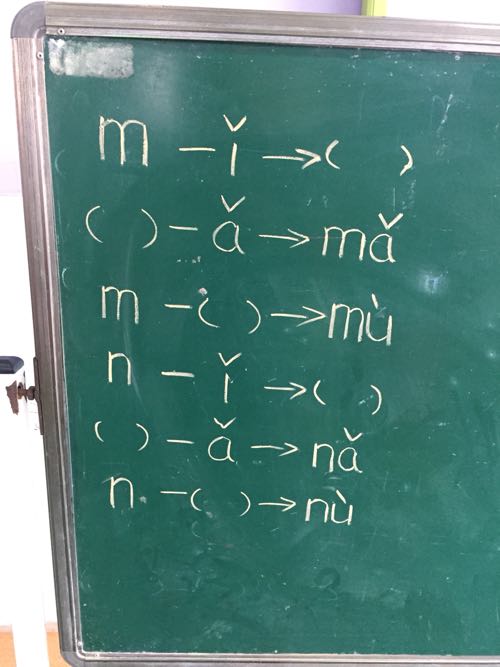 m - ǐ → ( )
( ) - ǎ → mǎ
m - ( ) → mù
n - ǐ → ( )
( ) - ǎ → nǎ
n - ( ) → nù